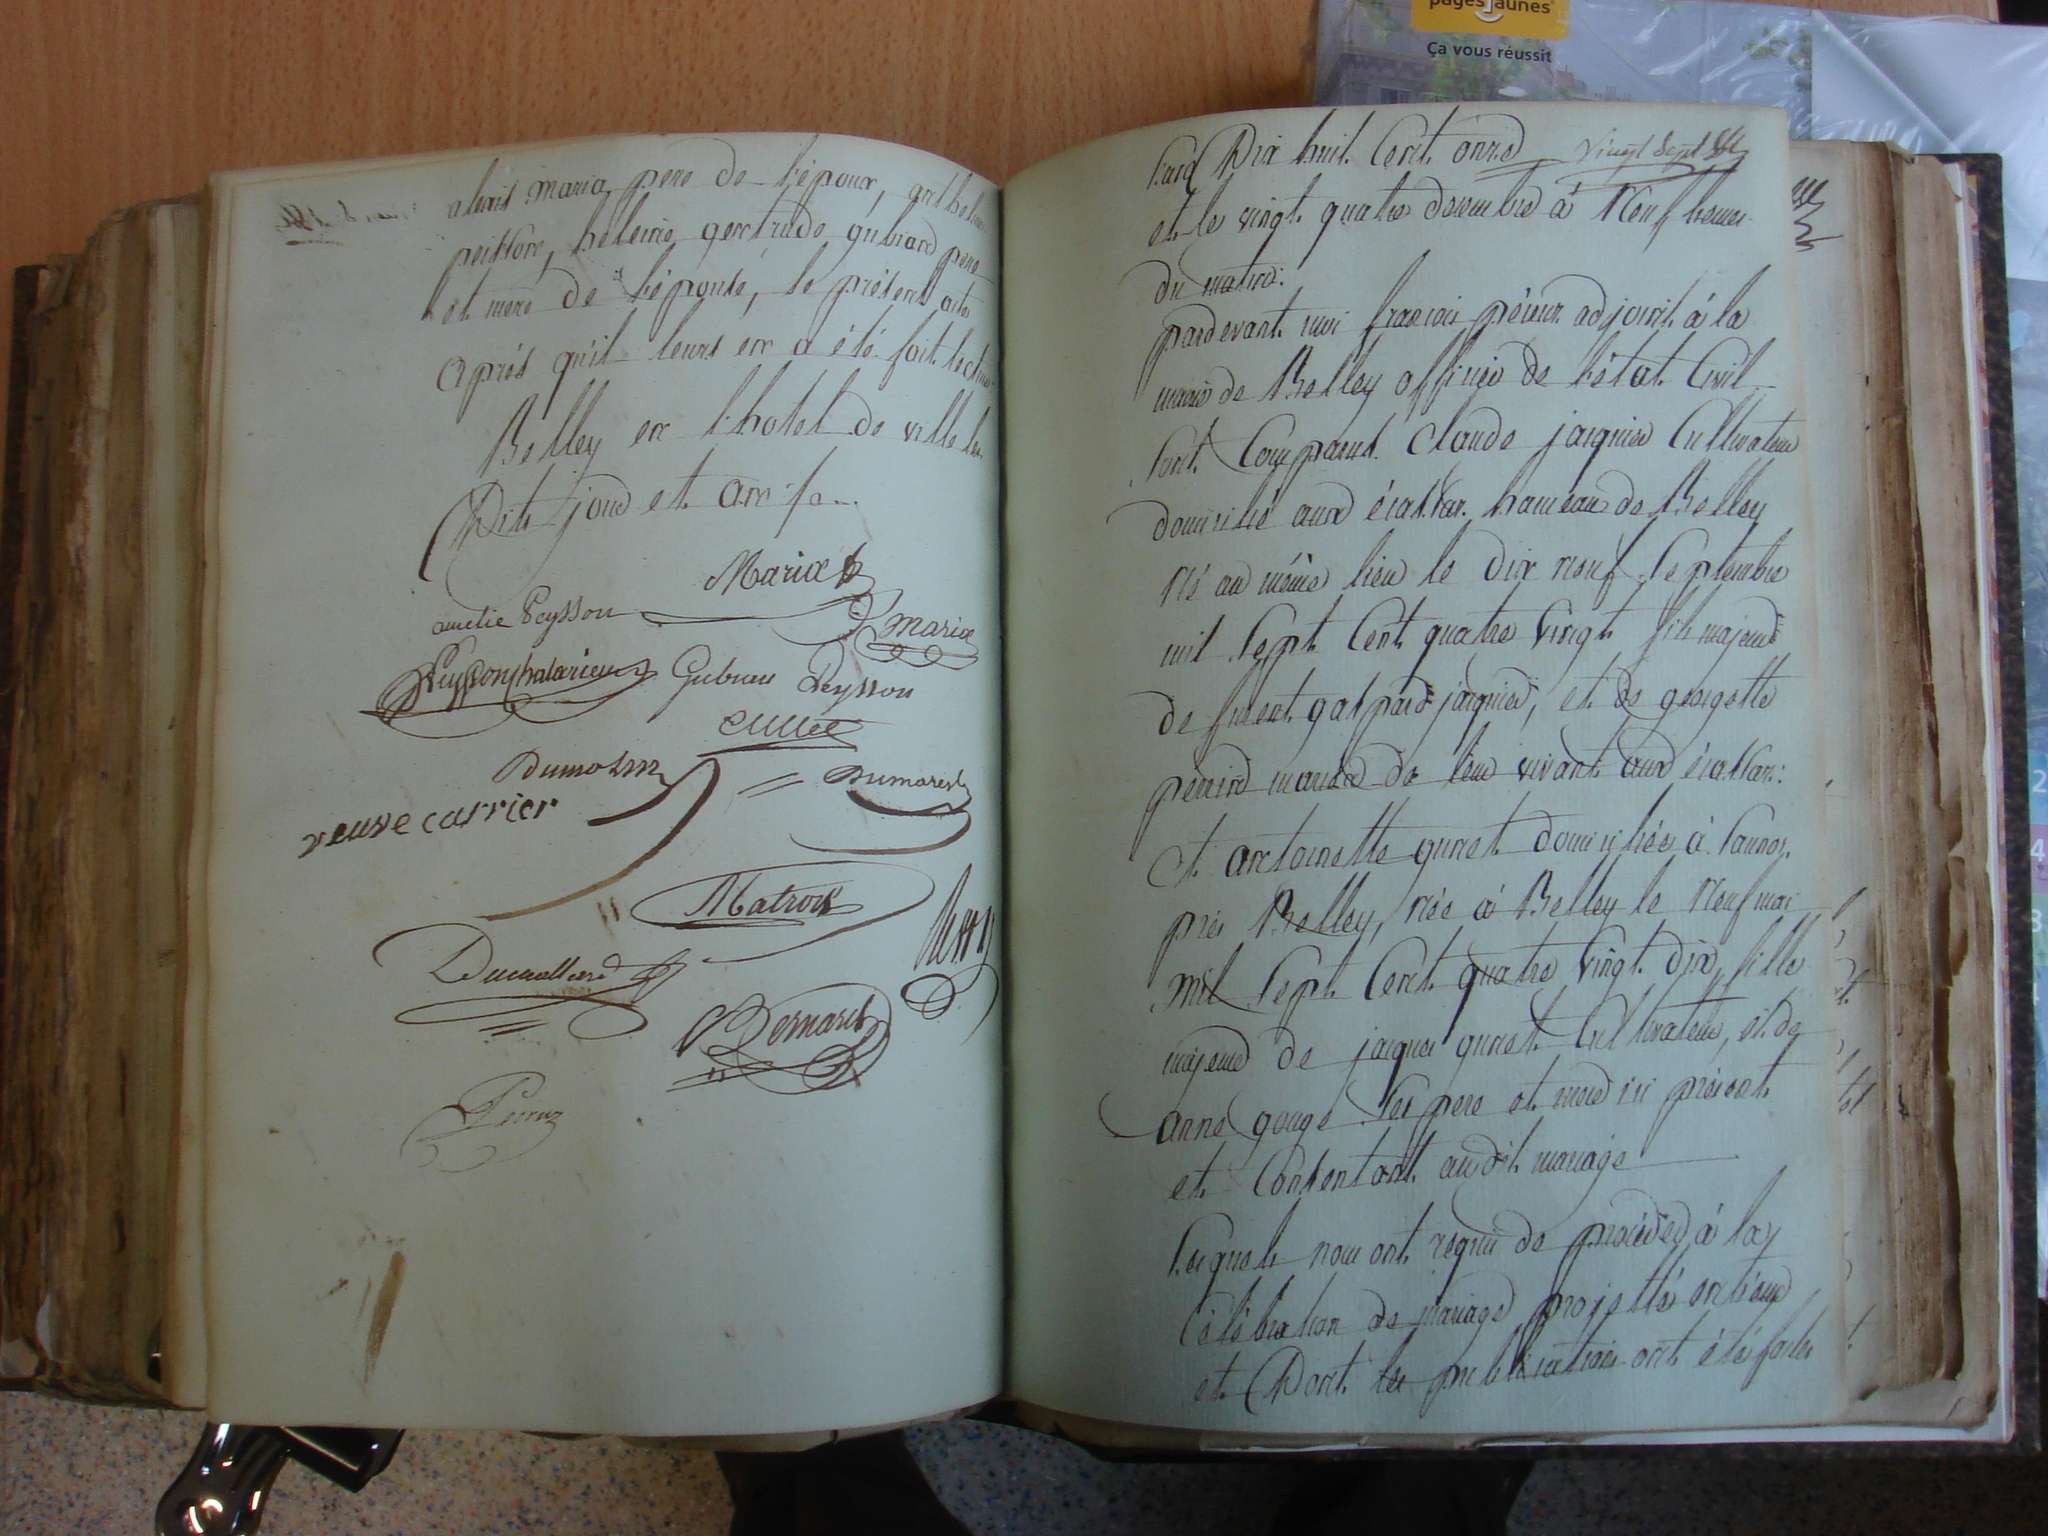 pagesjaunes
Ça vous réussit
alexis marion pere de l'époux, anthelme
peisson, heleine gertrude gubiand pere
et mere de l'épouse, le présent acte
après qu'il leurs en a été fait lecture
Belley en l'hotel de ville les
Dits jour et an
Marion
amélie Peysson
Marion
Gubian Peysson
Dumolin
Dumarest
veuve carrier
Matroux
Dumollard
Bernard
L'an Dix huit Cent onze
vingt sept
et le vingt quatre decembre à Neuf heures
du matin.
pardevant moi françois adjoint à la
mairie de Belley officier de l'état Civil
Sont Comparus Claude jarguier Cultivateur
domicilié aux écassaz hameau de Belley
Né au même lieu le dix neuf Septembre
mil Sept Cent quatre vingt fils majeur
de furent gaspard jarguier, et de georgette
perrin mariés de leur vivant aux écassaz:
et antoinette guinet domiciliée à
près Belley, née à Belley le Neuf mai
mil Sept Cent quatre vingt dix, fille
majeure de jacques guinet Cultivateur, et de
anne gouge Ses pere et mere ici présent
et Consentant audit mariage
Lesquels nous ont requis de procéder à la
Célébration de mariage projetté entr'eux
et Dont les publications ont été faites
2
4
3